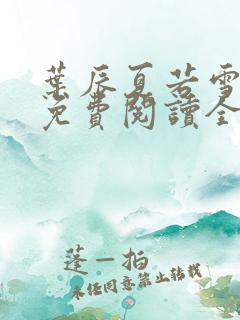 葉辰夏若雪
免費閱讀全
蓬一拍
未任同意禁止轉載